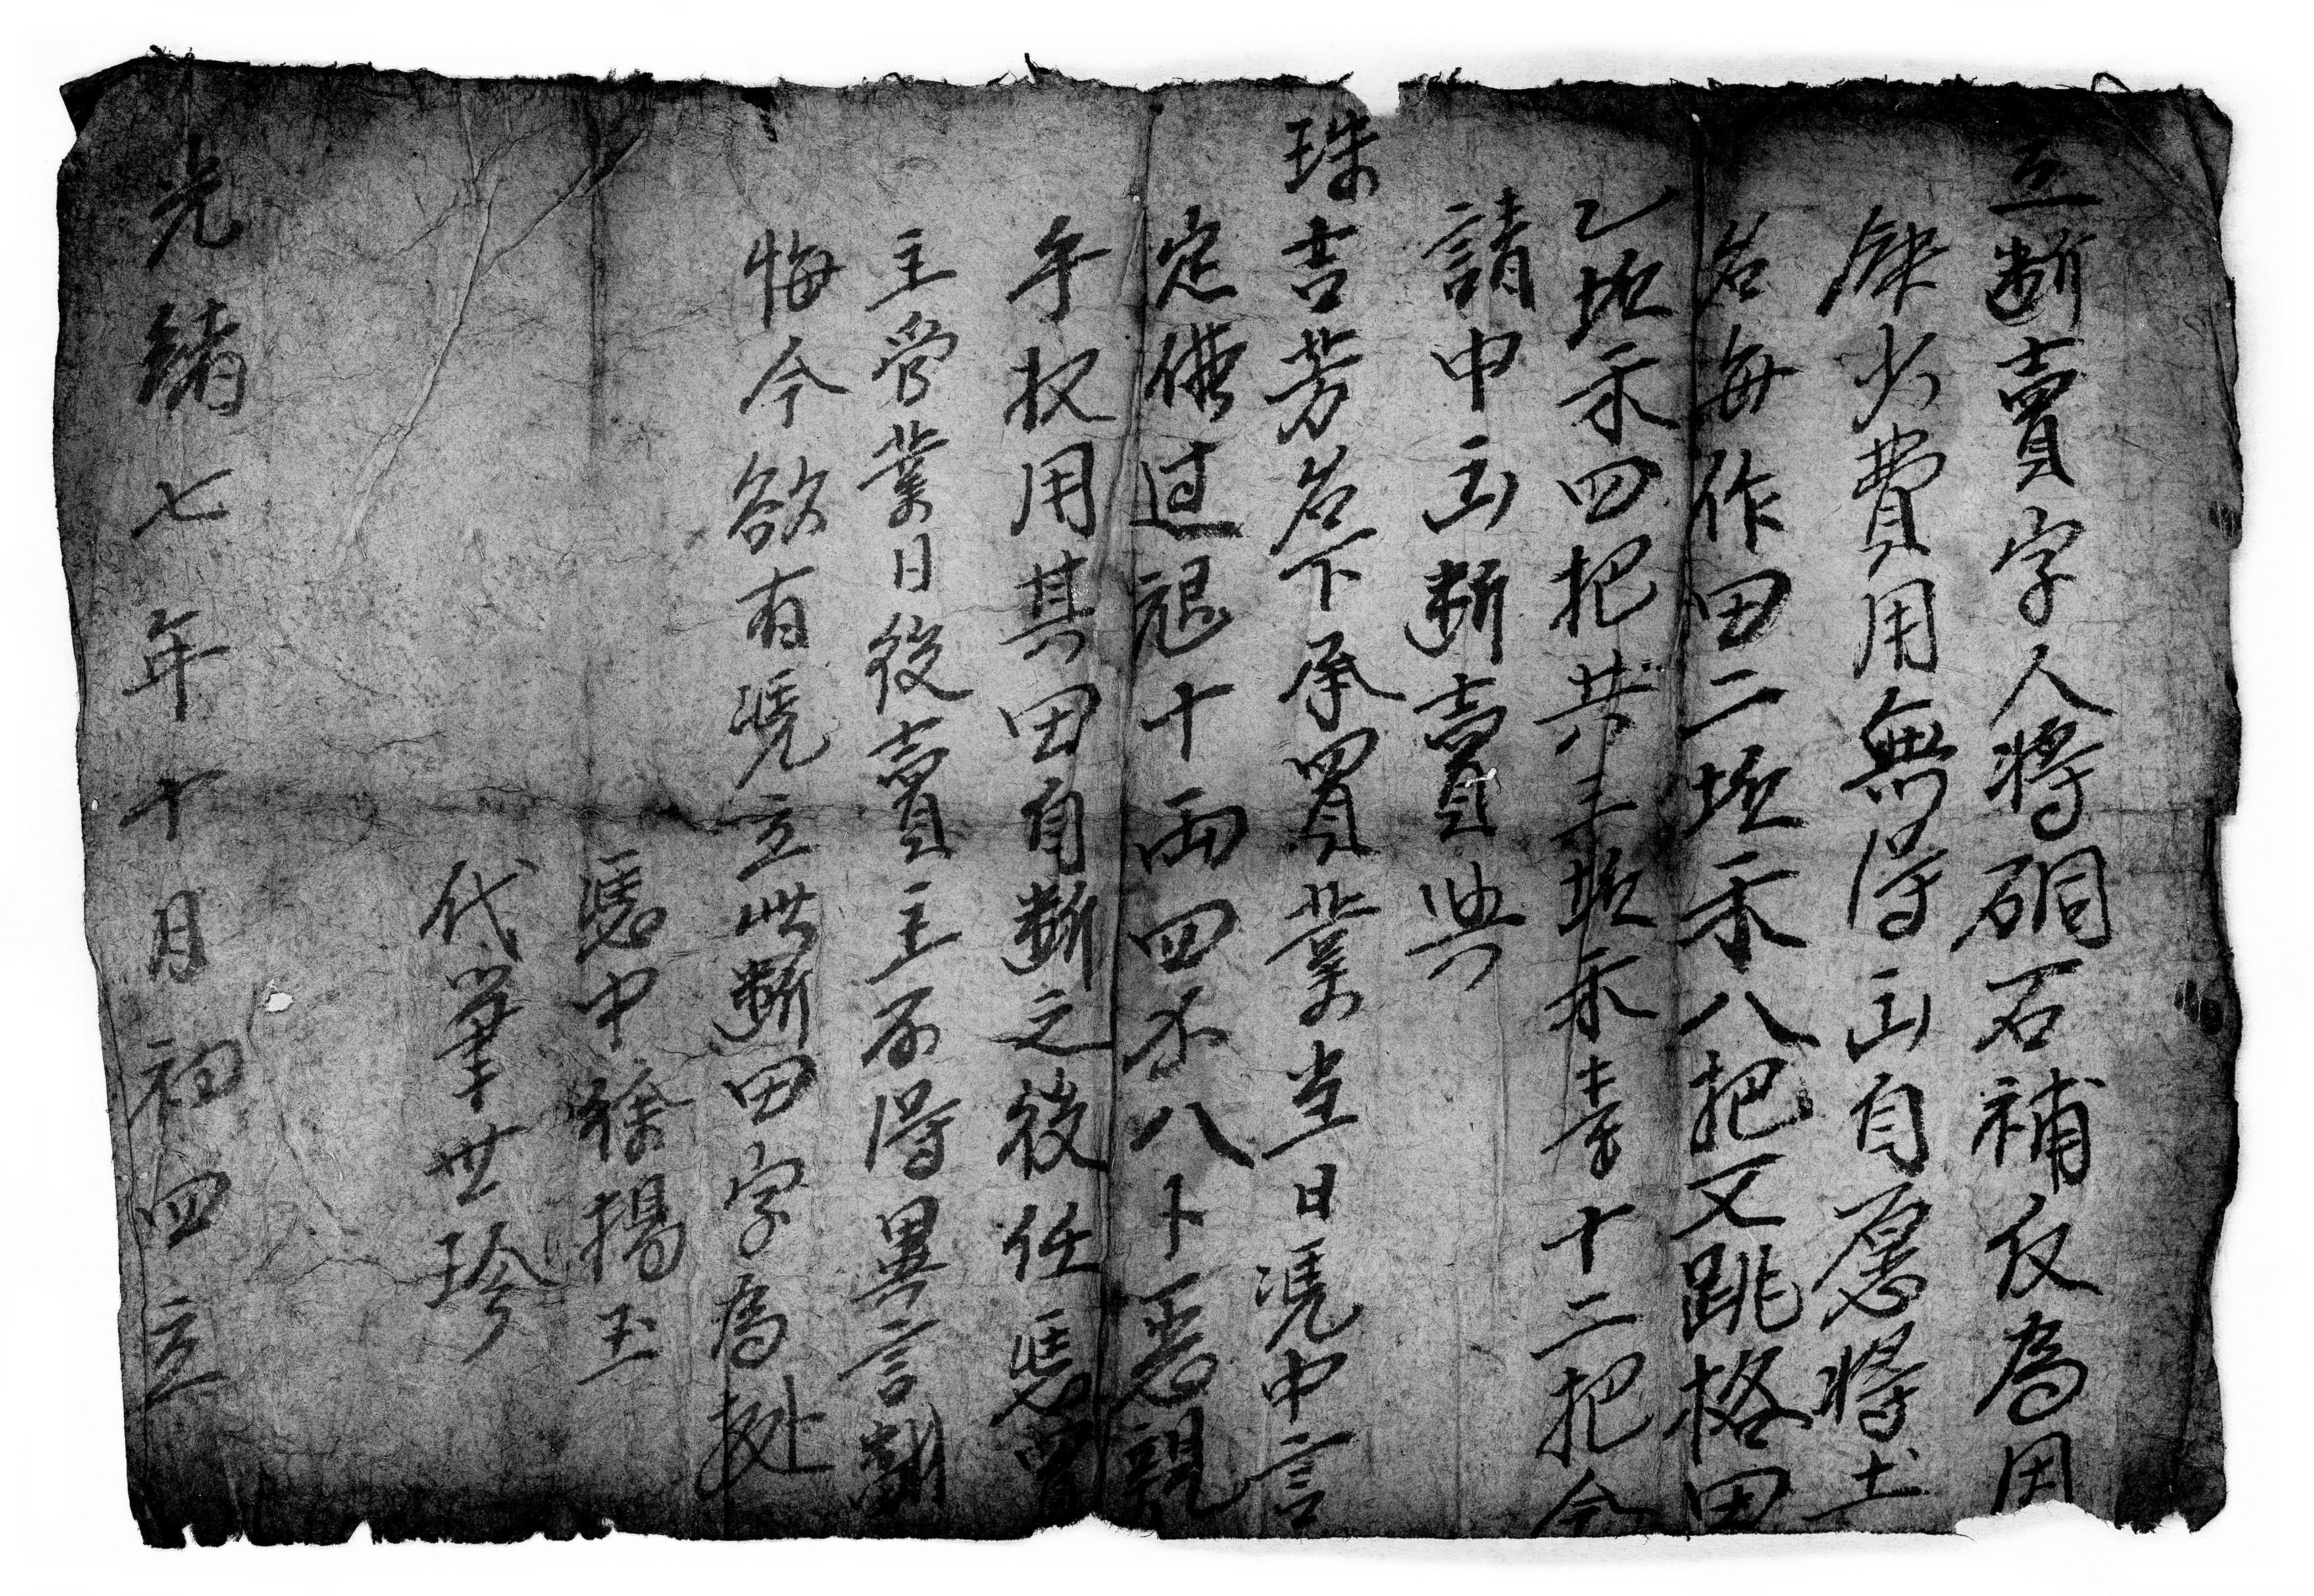 立斷賣字人將硐石補仅為因
缺少費用無淂出自愿將土
名每作田二坵禾八把又跳格田
乙坵禾四把共三坵禾十二把今
請中出斷賣與
珠吉芳名下承買業當日凴中言
定價过禠十両四不八卜恶親
手収用其田自斷之後任凭買
主管業日後賣主不淂異言翻
悔今欲有凴立此斷田字為処
憑中徐揚玉
代筆世珍
光緒七年十月初四立